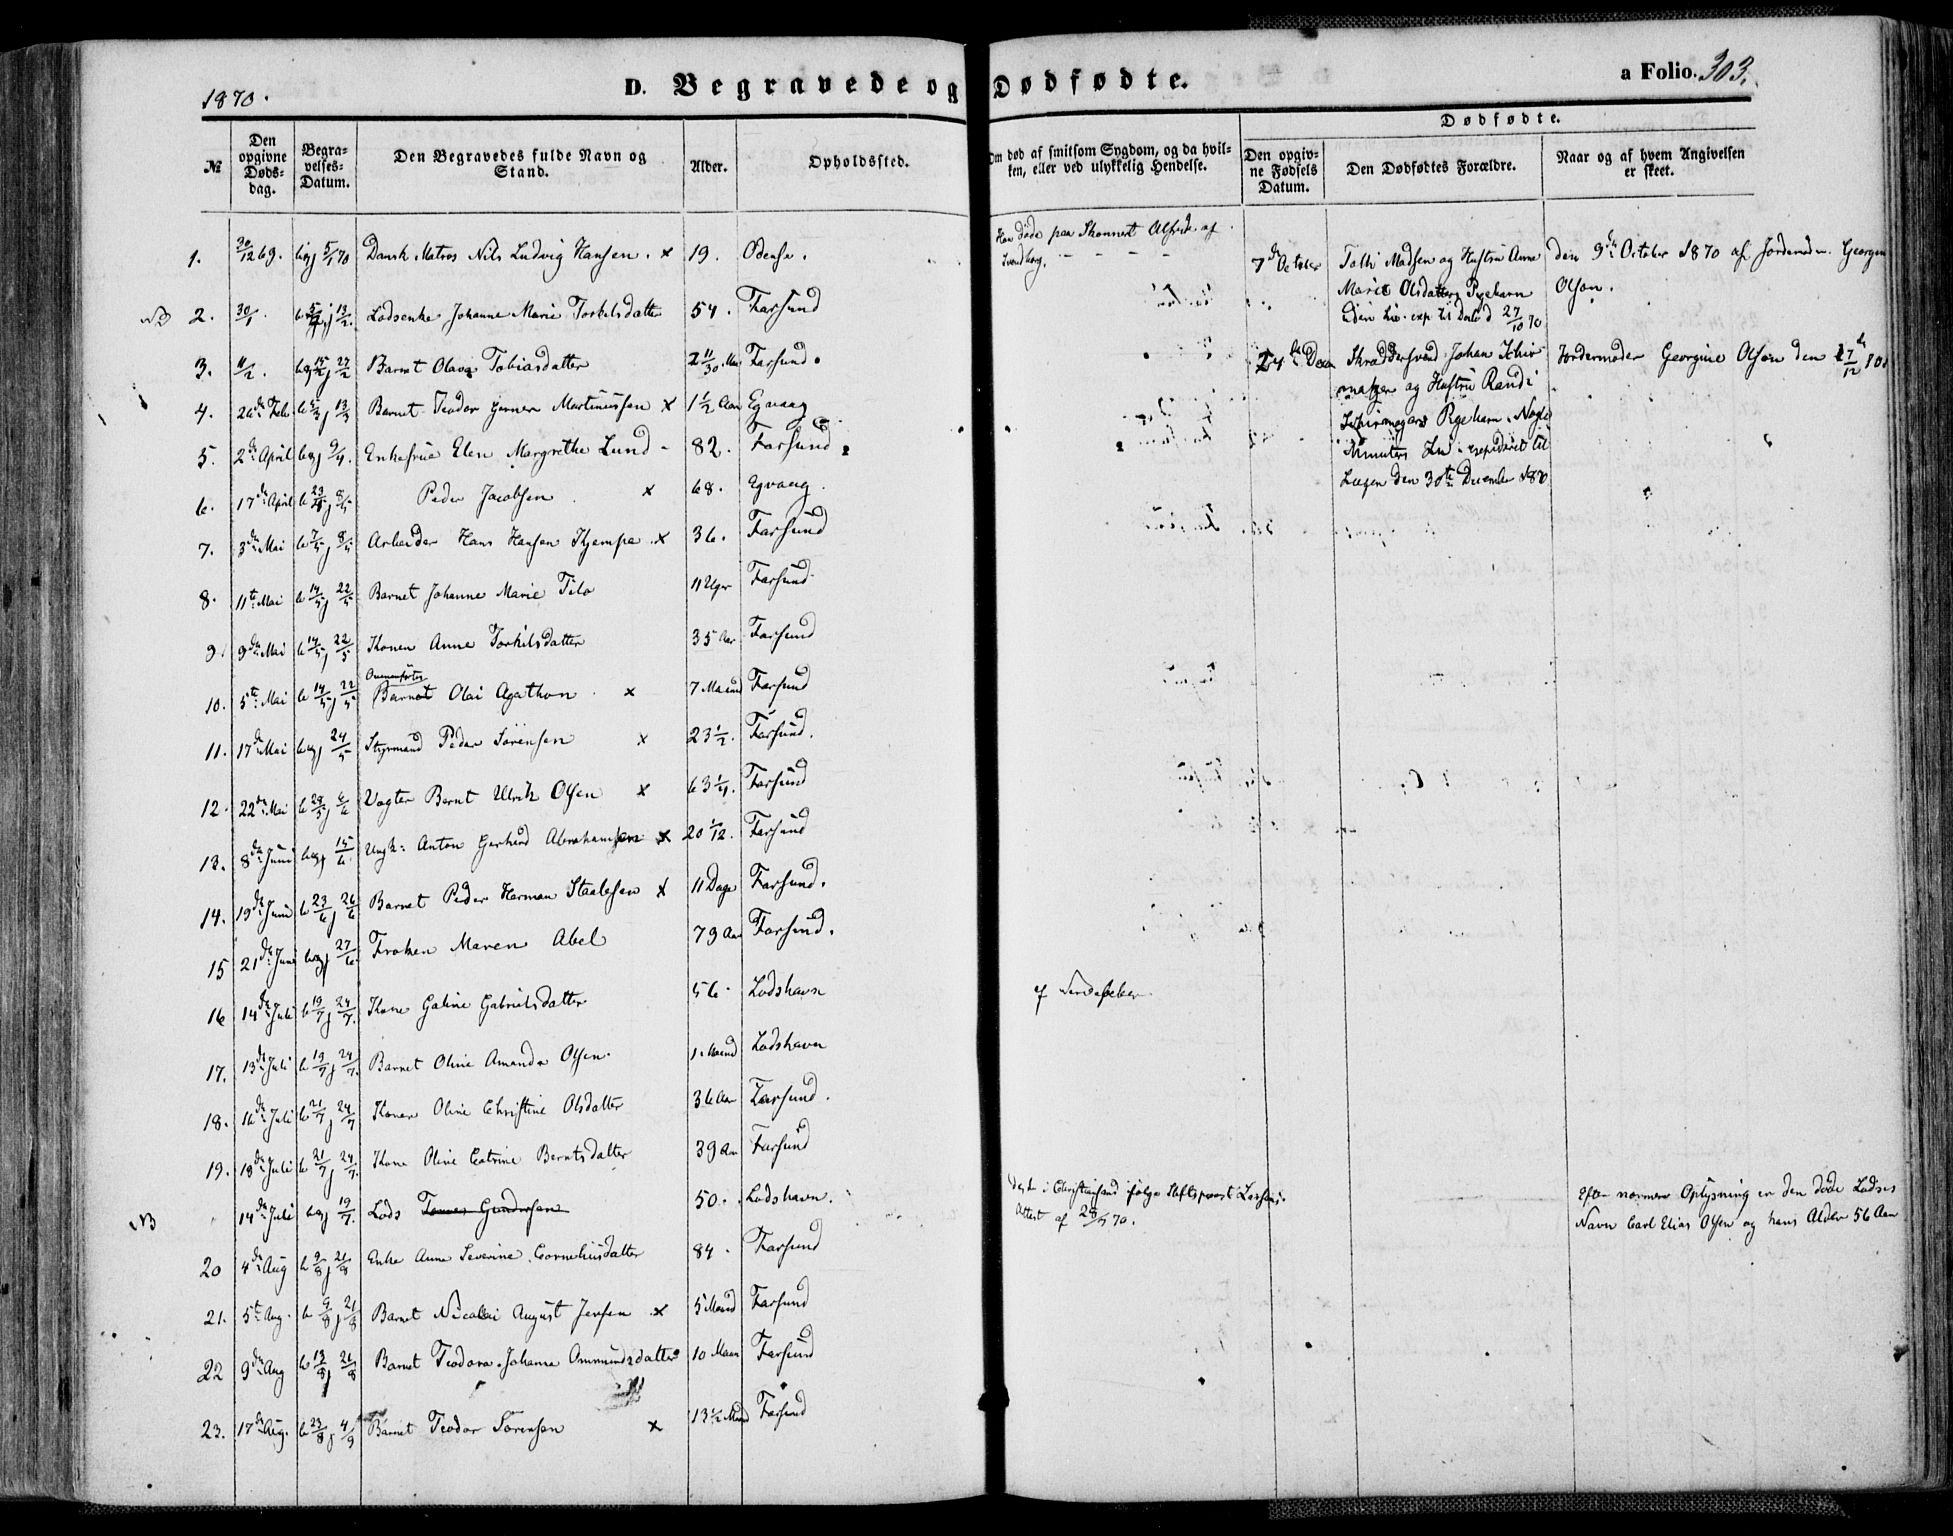 1870.
D. Begravede og Dødfødte.
a Folio. 303.
№
Den opgivne Døds-dag.
Begra-velses-Datum.
Den Begravedes fulde Navn og Stand.
Alder.
Opholdssted.
Om død af smitsom Sygdom, og da hvil-ken, eller ved ulykkelig Hendelse.
Dødfødte.
Den opgiv-ne Fødsels Datum.
Den Dødfødtes Forældre.
Naar og af hvem Angivelsen er skeet.
1. 30/12 69. beg 5/1 70 Dansk Matros Nils Ludvig Hansen. x 19. Odense.
Han døde paa Skonnert Alfred af
Svendborg.
7de October
Tolli Madsen og Hustru Anne
Marie Olsdatter, Rygehavn
27/10 70
den 9de October 1870 af Jordemoder Georgine
Olsen.
NB 2. 30/1. b 5/2 j 13/2. Lodsenke Johanne Marie Torkilsdatter 54. Farsund
3. 11/2. b 15/2 j 27/2 Barnet Olava Tobiasdatter 2 11/30 Farsund.
24de Decr
Skræddersvend Johan Schir-
mager og Hustru Randi
Schirmagers Rygehavn
expederet til
den 30te December 1870
Jordemoder Georgine Olsen den 27de/12 80
4. 26de Febr b 5/3 j 13/3 Barnet Teodor Gerner Martinussen x 1 1/2 Aar Egvaag
5. 2de April beg 9/4. Enkefrue Elen Margrethe Lund - 82. Farsund
6. 17de April b 23/4 j 8/5 Peder Jacobsen x 68. Egvaag.
7. 3de Mai b 7/5 j 8/5 Arbeider Hans Hansen Kjempe x 36. Farsund
8. 11te Mai b 14/5 j 22/5 Barnet Johanne Marie Tilo 11 Uger Farsund
9. 9de Mai b 14/5 j 22/5 Konen Anne Torkilsdatter 35 Aar Farsund
10. 5te Mai b 14/5 j 22/5 Barnet Olai Agathon x 7 Maaned Farsund
11. 17de Mai beg 24/5 Styrmand Peder Sørensen x 23 1/2. Farsund.
12. 22de Mai b 29/5 j 6/6 Vægter Bernt Ulrik Olsen x 63 1/4. Farsund
13. 8de Juni beg 15/6 Ungk: Anton Gerhard Abrahamsen x 20 1/12. Farsund
14. 19de Juni b 23/6 j 26/6 Barnet Peder Herman Staalesen x 11 Dage Farsund.
15 21de Juni beg 27/6 Frøken Maren Abel 79 Aar Farsund.
16 14de Juli b 19/7 j 24/7. Kone Galine Gabrielsdatter 56. Lodshavn
17. 13de Juli b 19/7 j 24/7. Barnet Oline Amanda Olsen. 1 Maaned Lodshavn
18. 16de Juli b 21/7 j 24/7 Konen Oline Christine Olsdatter 36 Aar Farsund.
19. 18de Juli b 21/7 j 24/7. Kone Oline Catrine Berntsdatter 39 Aar Farsund
NB 14de Juli beg 19/7. Lods Tønnes Gundersen 50. Lodshavn.
døde i Christiansand ifølge Stiftsprovst
Attest af 28/7 70.
Efter nærmere Oplysning er den døde Lodses
Navn Carl Elias Olsen og hans Alder 56 Aar
20 4de Aug b 9/8 j 21/8 Enke Anne Severine Corneliusdatter 84. Farsund
21. 5te Aug. b 9/8 j 21/8 Barnet Nicolai August Jensen x 5 Maaned Farsund
22 9de Aug b 13/8 j 21/8 Barnet Teodora Johanne Ommundsdatter 10 Maan Farsund
23. 17de Aug. b 23/8 j 4/9 Barnet Teodor Sørensen x 13 1/2 Maaned Farsund